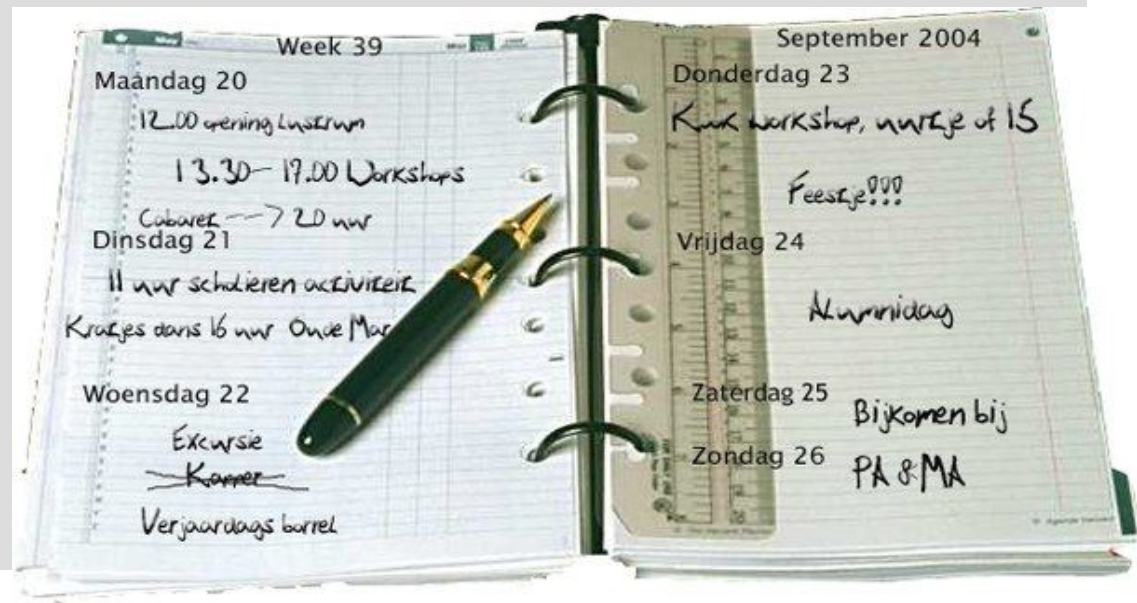 Week 39
Maandag 20
12.00 opening Lustrum
13.30 - 17.00 Workshops
Cabaret ---> 20 uur
Dinsdag 21
11 uur scholieren activiteit
Kratjes dans 16 uur Oude Mar
Woensdag 22
Excursie
Kapper
Verjaardags borrel
September 2004
Donderdag 23
workshop, uurtje of 15
Feestje!!!
Vrijdag 24
Alumnidag
Zaterdag 25
Bijkomen bij
Zondag 26
PA & MA